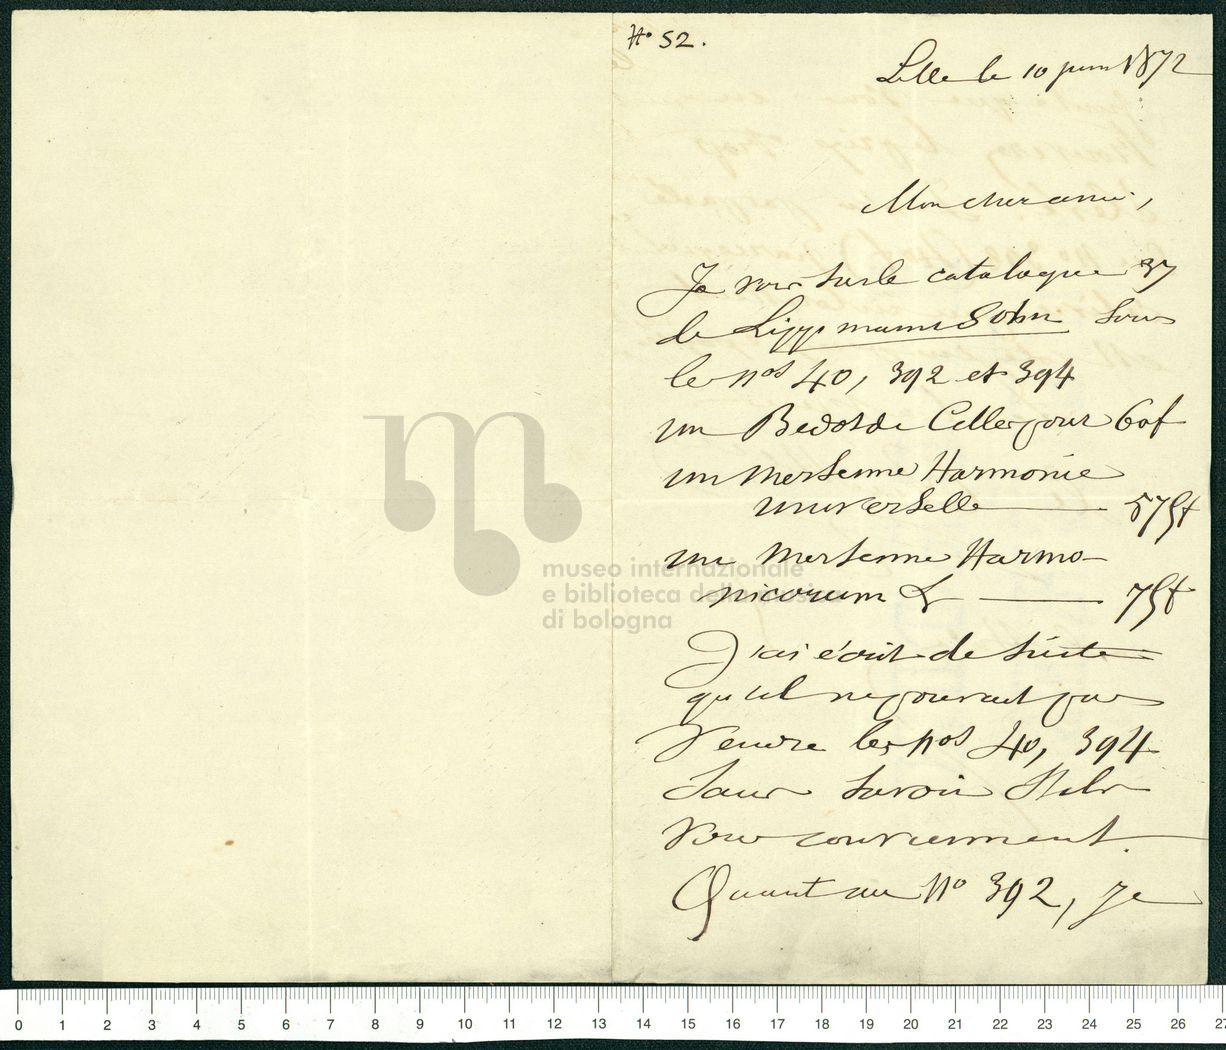 No 52.
Lille le 10 juin 1872
Mon cher ami,
Je vois sur le catalogue 37
de Lippmannsohn sous
les nos 40, 392 et 394
un Bedos de Celles pour 60f
un Mersenne Harmonie
universelle 575f
un Mersenne Harmo-
nicorum & 75f
J'ai écrit de suite
qu'il ne pouvait pas
vendre les nos 40, 394
sans savoir s'ils
vous conviennent.
Quant au No 392, je
museo internazionale
e biblioteca della musica
di bologna
0 1 2 3 4 5 6 7 8 9 10 11 12 13 14 15 16 17 18 19 20 21 22 23 24 25 26 27